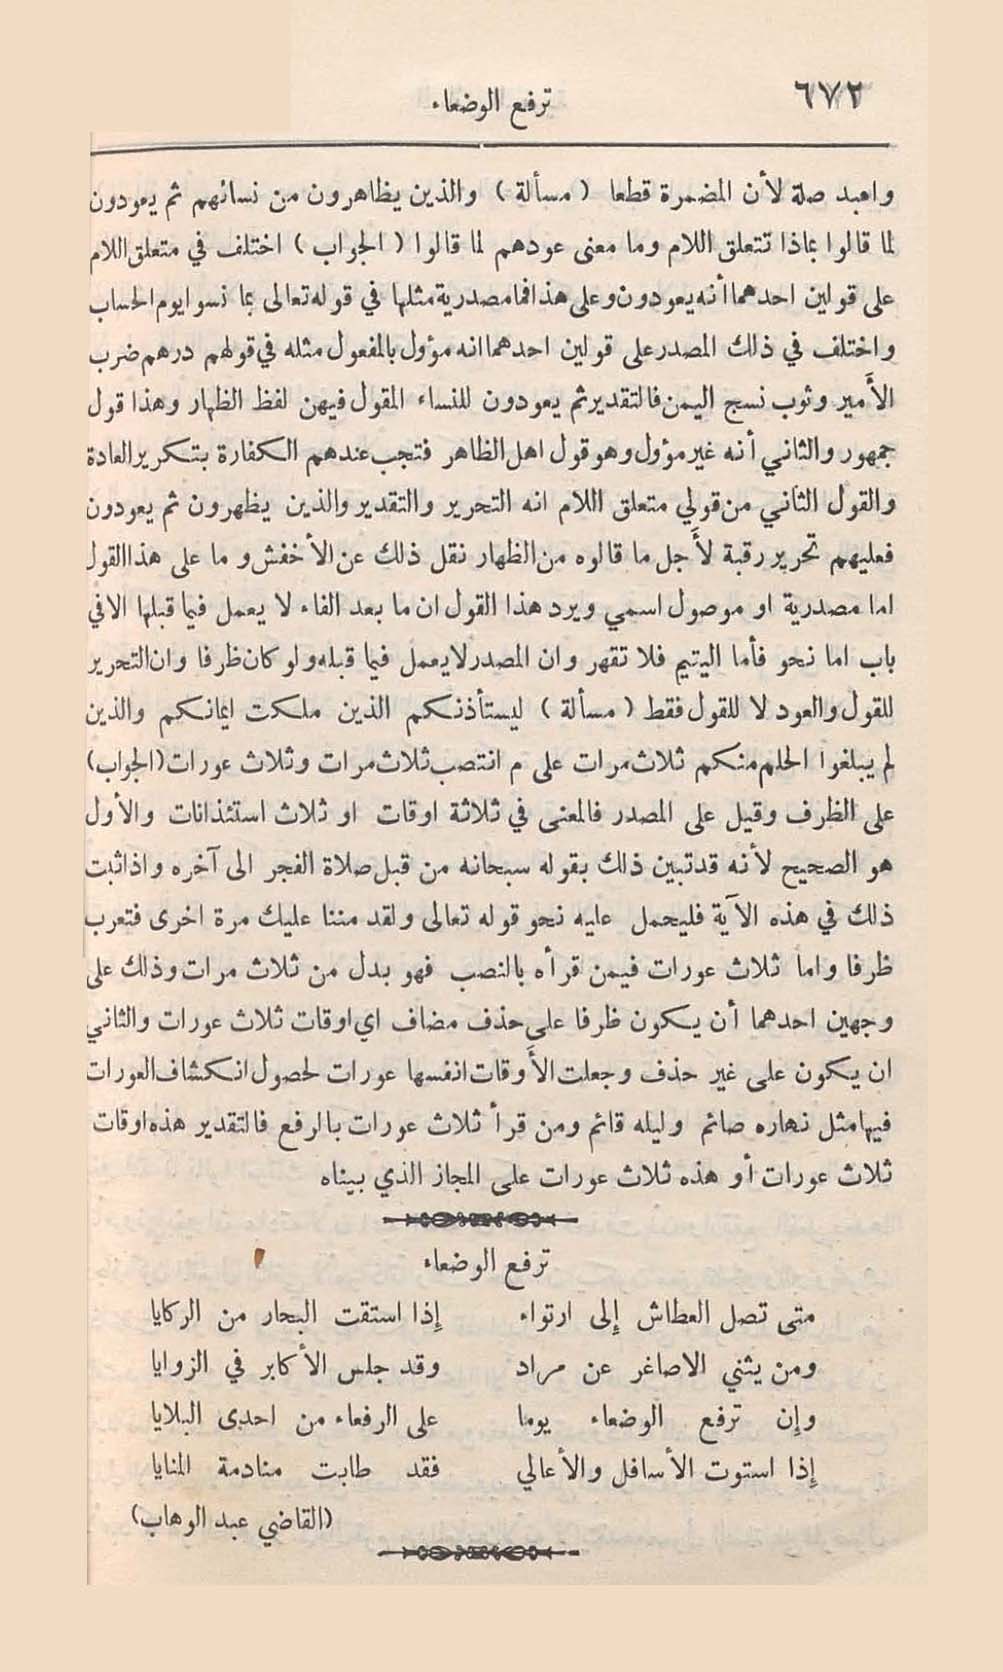 ٦٧٢
ترفع الوضعاء
واعبد صلة لأن المضمرة قطعا (مسألة) والذين يظاهرون من نسائهم ثم يعودون
لما قالوا بماذا تتعلق اللام وما معنى عودهم لما قالوا (الجواب) اختلف في متعلق اللام
على قولين احدهما أنه يعودون وعلى هذا فما مصدرية مثلها في قوله تعالى بما نسوا يوم الحساب
واختلف في ذلك المصدر على قولين احدهما انه مؤول بالمفعول مثله في قولهم درهم ضرب
الأمير وثوب نسج اليمن فالتقدير ثم يعودون للنساء المقول فيهن لفظ الظهار وهذا قول
جمهور والثاني أنه غير مؤول وهو قول اهل الظاهر فتجب عندهم الكفارة بتكرير العادة
والقول الثاني من قولي متعلق اللام انه التحرير والتقدير والذين يظهرون ثم يعودون
فعليهم تحرير رقبة لأجل ما قالوه من الظهار نقل ذلك عن الأخفش و ما على هذا القول
اما مصدرية او موصول اسمي ويرد هذا القول ان ما بعد الفاء لا يعمل فيما قبلها الا في
باب اما نحو فأما اليتيم فلا تقهر وان المصدر لا يعمل فيما قبله ولو كان ظرفا وان التحرير
للقول والعود لا للقول فقط (مسألة) ليستأذنكم الذين ملكت ايمانكم والذين
لم يبلغوا الحلم منكم ثلاث مرات على م انتصب ثلاث مرات وثلاث عورات (الجواب)
على الظرف وقيل على المصدر فالمعنى في ثلاثة اوقات او ثلاث استئذانات والأول
هو الصحيح لأنه قد تبين ذلك بقوله سبحانه من قبل صلاة الفجر الى آخره واذا ثبت
ذلك في هذه الآية فليحمل عليه نحو قوله تعالى ولقد مننا عليك مرة اخرى فتعرب
ظرفا واما ثلاث عورات فيمن قرأه بالنصب فهو بدل من ثلاث مرات وذلك على
وجهين احدهما أن يكون ظرفا على حذف مضاف اي اوقات ثلاث عورات والثاني
ان يكون على غير حذف وجعلت الأوقات انفسها عورات لحصول انكشاف العورات
فيها مثل نهاره صائم وليله قائم ومن قرأ ثلاث عورات بالرفع فالتقدير هذه اوقات
ثلاث عورات أو هذه ثلاث عورات على المجاز الذي بيناه
ترفع الوضعاء
متى تصل العطاش إلى ارتواء إذا استقت البحار من الركايا
ومن يثني الاصاغر عن مراد وقد جلس الأكابر في الزوايا
وإن ترفع الوضعاء يوما على الرفعاء من احدى البلايا
إذا استوت الأسافل والأعالي فقد طابت منادمة المنايا
(القاضي عبد الوهاب)